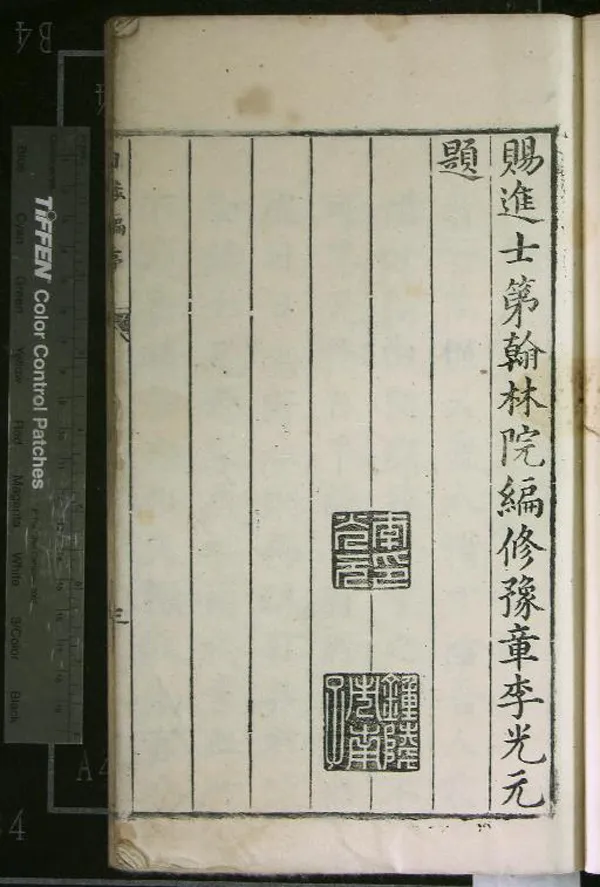 賜進士第翰林院編修豫章李光元
題
三
TIFFEN Color Control Patches
Blue
Cyan
Green
Yellow
Red
Magenta
White
3/Color
Black
B4
A4